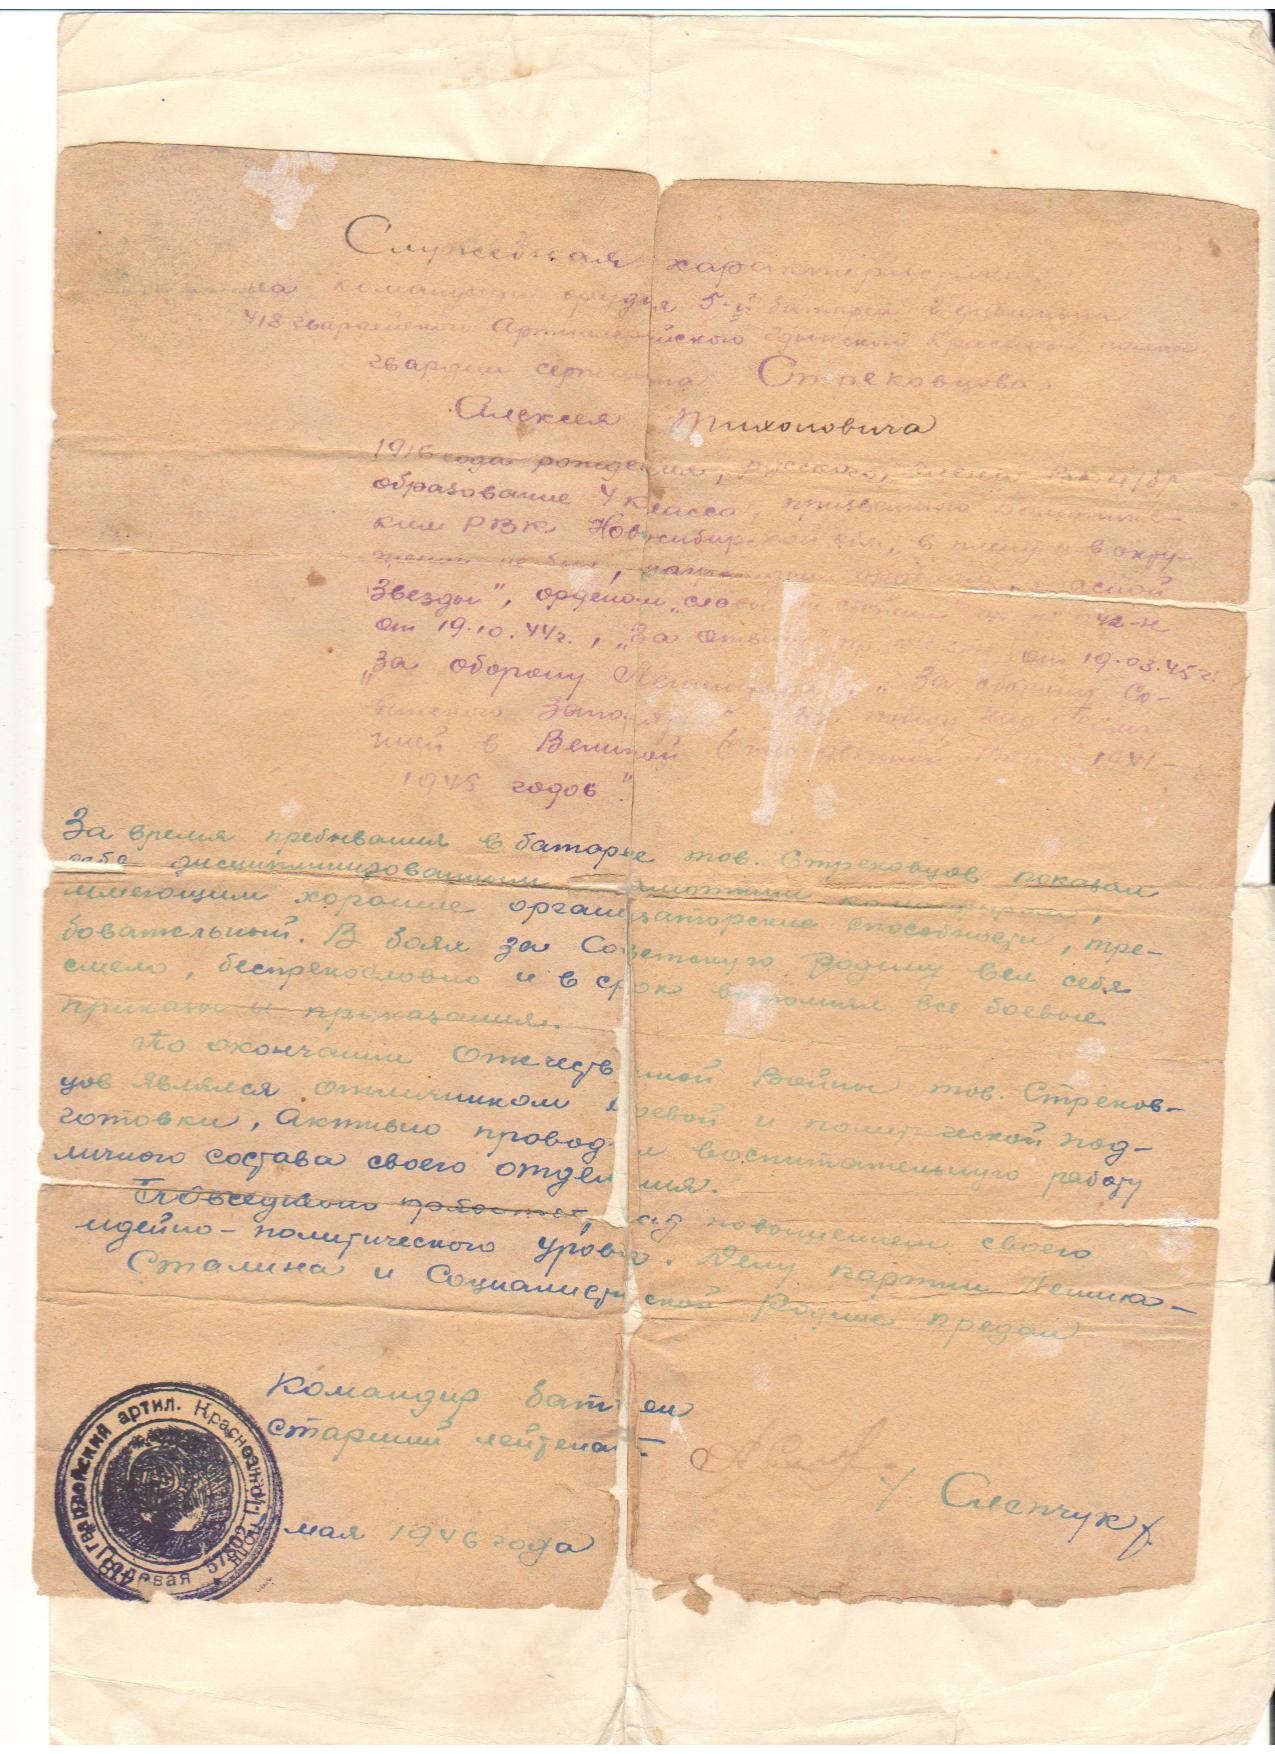 Служебная характеристика
на командира орудия 5-й батареи 2 дивизиона
418 гвардейского Артиллерийского Гдынской Краснозн. полка
гвардии сержанта Стрековцова
Алексея Тихоновича
1916 года рождения, русского, члена
образование 4 класса, призванного
ким РВК Новосибирской обл., в плену и в окру-
жении не был, награжден орденом „Красной
Звезды", орденом „Славы 42-н
от 19.10.44г., „За отвагу" пр. от 19.03.45г.
„За оборону Ленинграда", „За оборону Со-
ветского Заполярья" „За победу над Герма-
нией в Великой Отечественной Войне 1941-
1945 годов".
За время пребывания в батарее тов. Стрековцов показал
себя дисциплинированным грамотным командиром,
имеющим хорошие организаторские способности, тре-
бовательный. В боях за Советскую Родину вел себя
смело, беспрекословно и в срок выполнял все боевые
приказы и приказания.
По окончании Отечеств нной Войны тов. Стреков-
цов являлся отличником боевой и политической под-
готовки, Активно проводил воспитательную работу
личного состава своего отделения.
Повседневно работает над повышением своего
идейно-политического уровня. Делу партии Ленина-
Сталина и Социалистической Родине предан
Командир батареи
Старший лейтенант
/ Слепчук /
мая 1946 года
418 гвардейский артил. Краснозн. полк
Полевая 57802